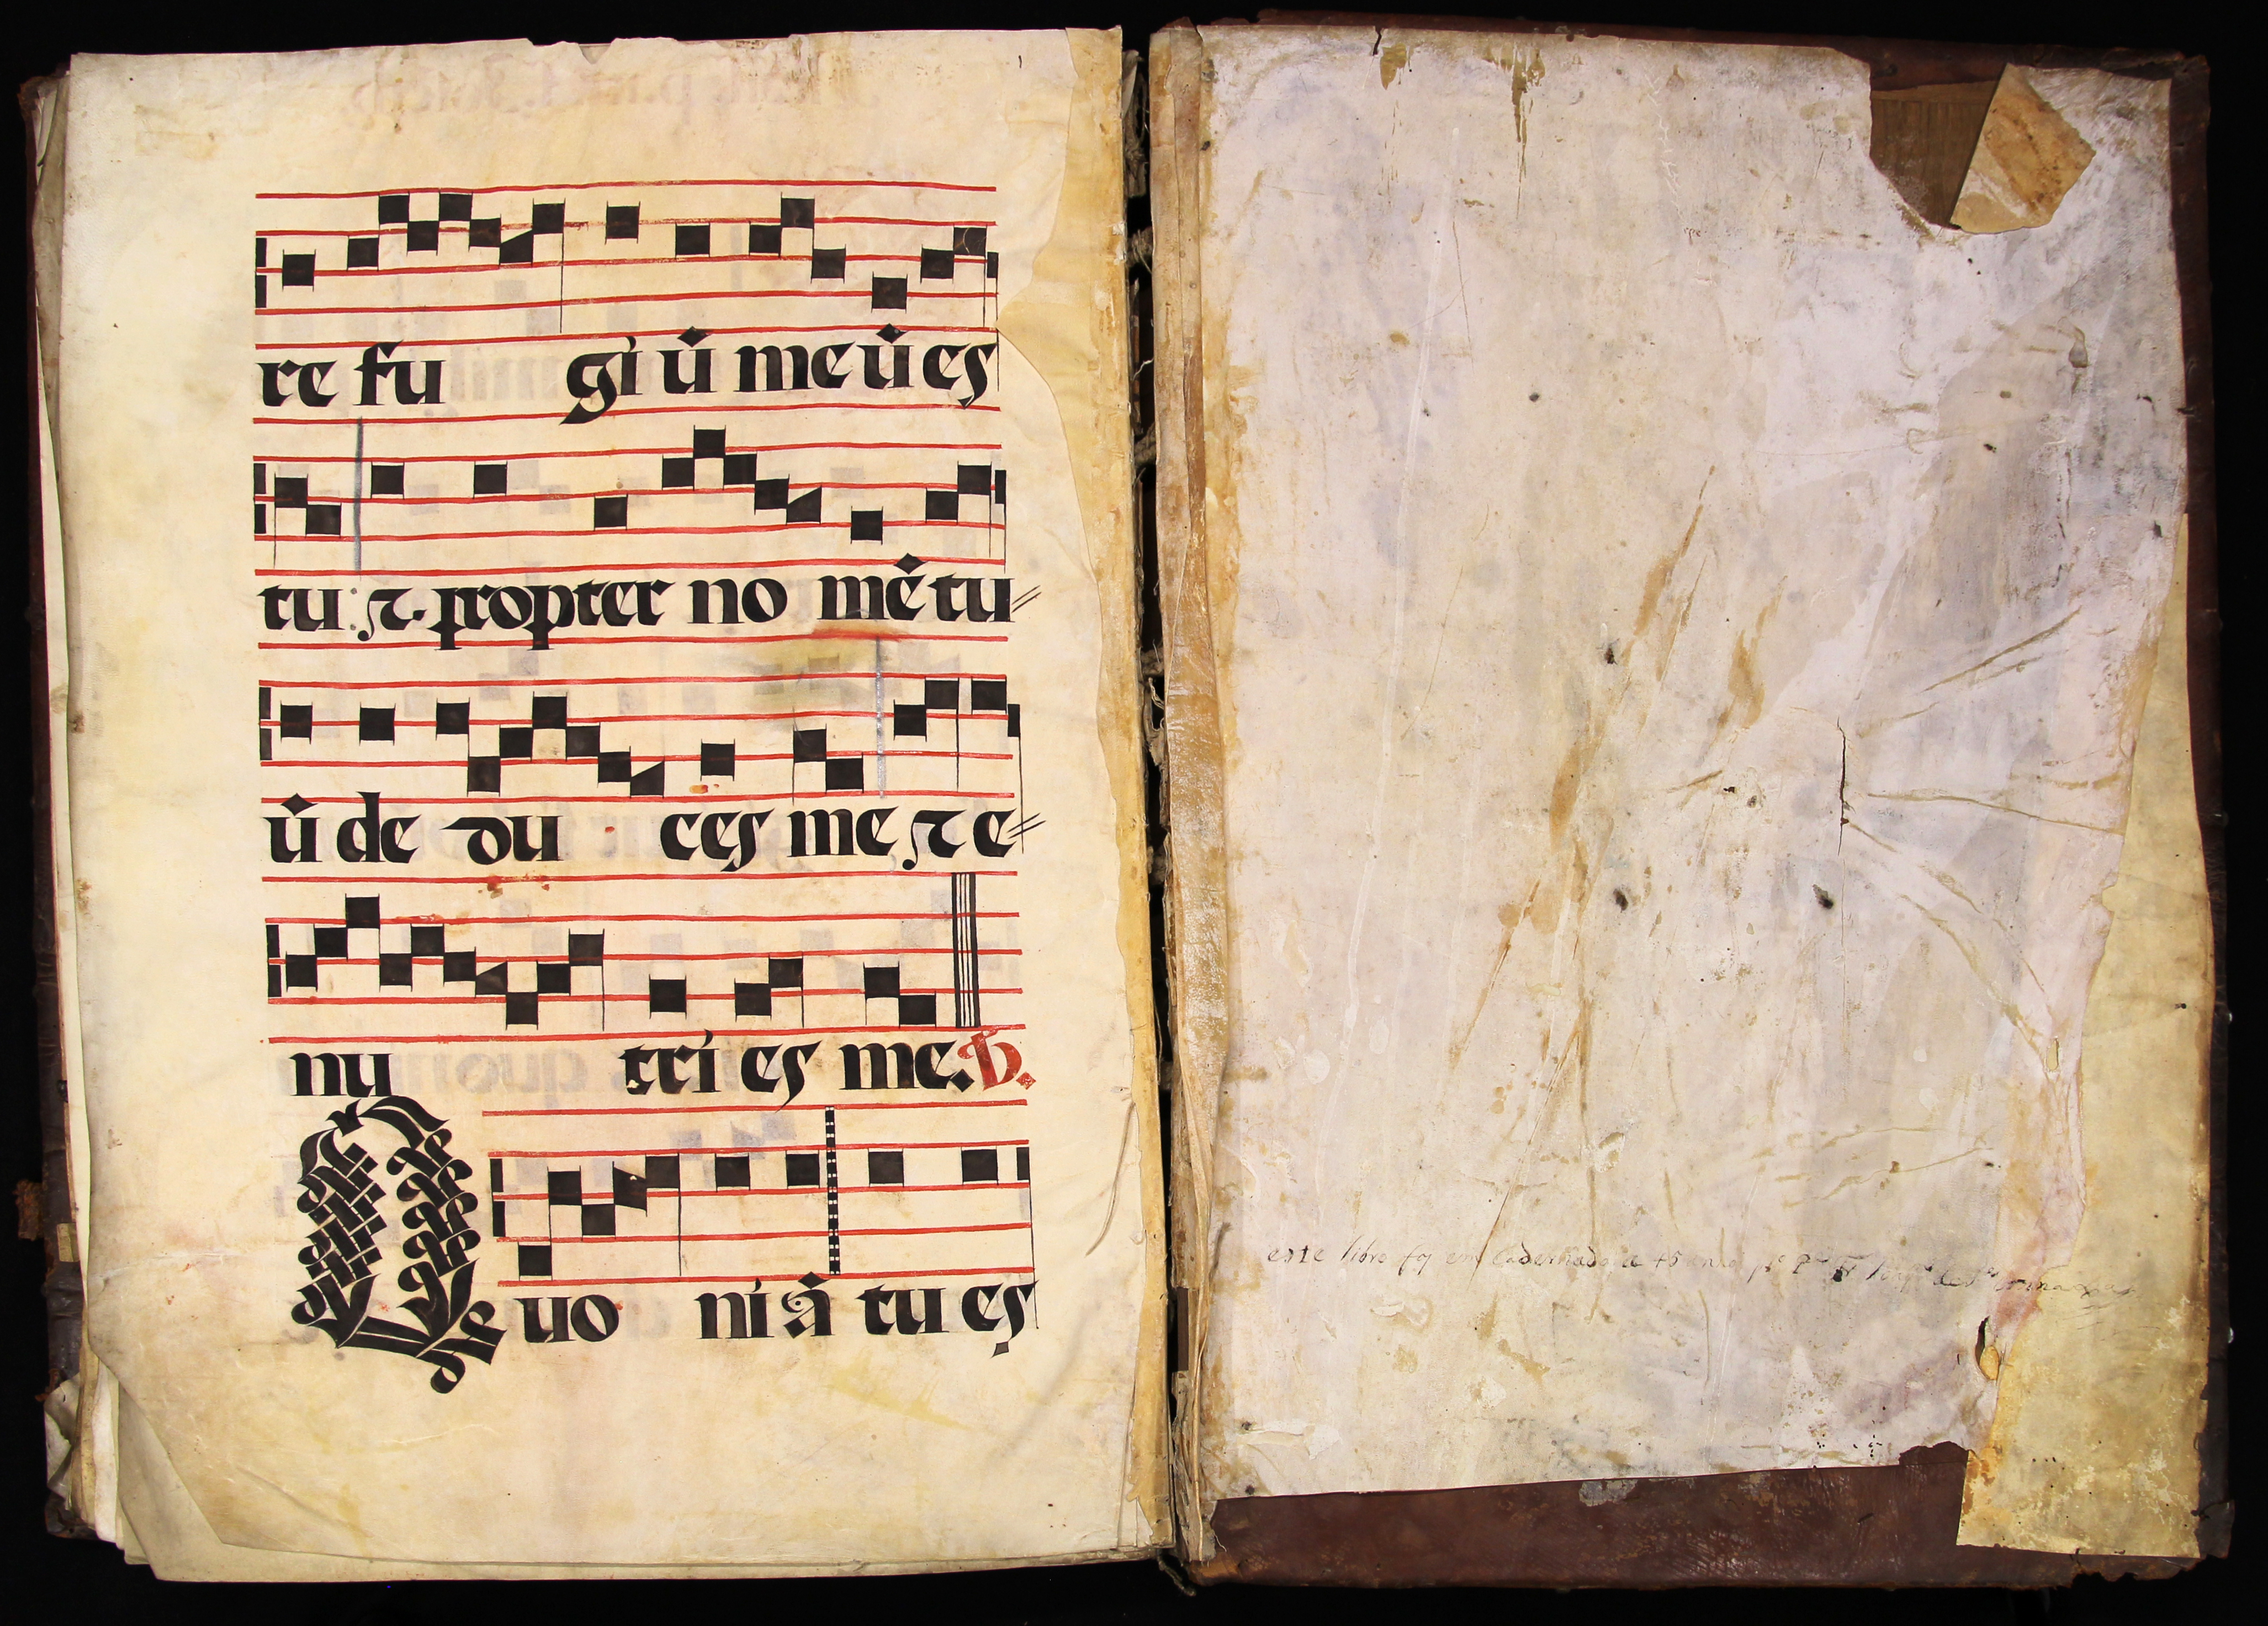 re fu giū meū es
tu: ⁊. propter no mē tu//
ū de du ces me ⁊ e//
nu tri es me. V.
Quo niā tu es
este libro foy em Cadernado